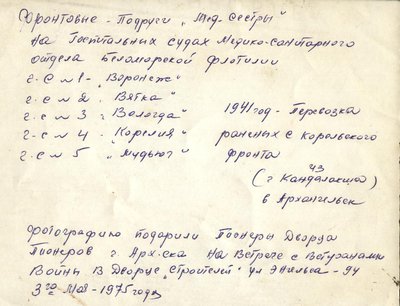 Фронтовые - Подруги „Мед-Сестры"
На Госпитальных судах Медико-санитарного
отдела Беломорской флотилии
г.с № 1 - „Воронеж"
г.с № 2 „Вятка"
г.с № 3 „Вологда"
г.с № 4 - „Карелия"
г.с № 5 „Мудьюг"
1941 год - Перевозка
раненых с Корельского
фронта
из
(г Кандалакша)
в Архангельск
Фотографию подарили Пионеры Дворца
Пионеров г Арх-ска На Встрече с Ветеранами
Войны В Дворце „Строителей" ул Энгельса - 94
3го Мая - 1975 года